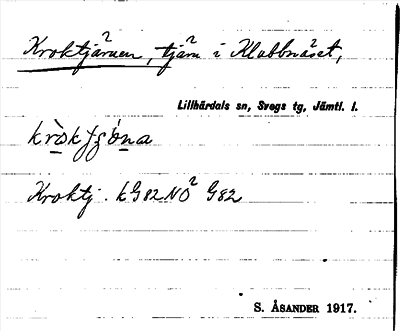 Kroktjärnen, tjärn i Klabbnäset,
Lillhärdals sn, Svegs tg, Jämtl. l.
Kroktj. kG82NO G82
S. ÅSANDER 1917.